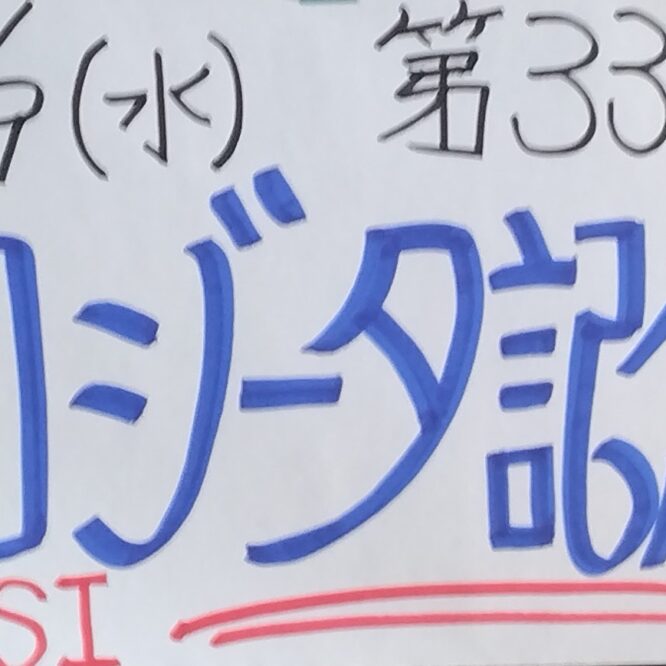 9(水) 第33
ロジータ記
SI